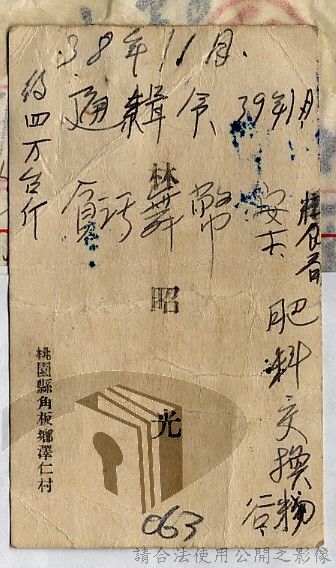 38年11月
通緝令 39年1月
糧食局
肥料交換
谷
林昭光
桃園縣角板鄉澤仁村
四万台斤
063
請合法使用公開之影像